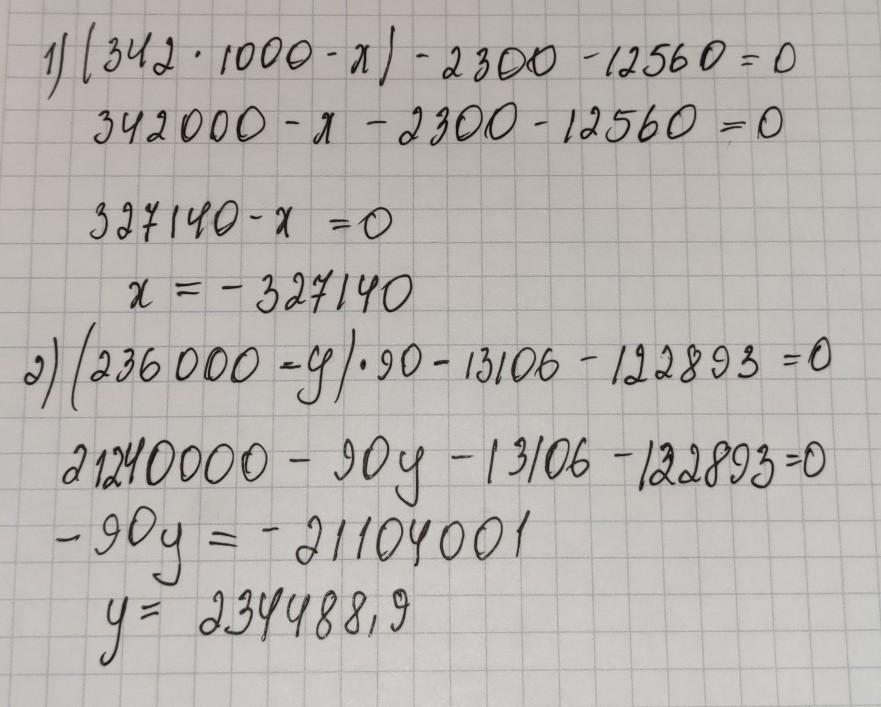 1) (342 · 1000 - x) - 2300 - 12560 = 0
342000 - x - 2300 - 12560 = 0
327140 - x = 0
x = - 327140
2) (236000 - y) · 90 - 13106 - 122893 = 0
21240000 - 90y - 13106 - 122893 = 0
- 90y = - 21104001
y = 234488,9